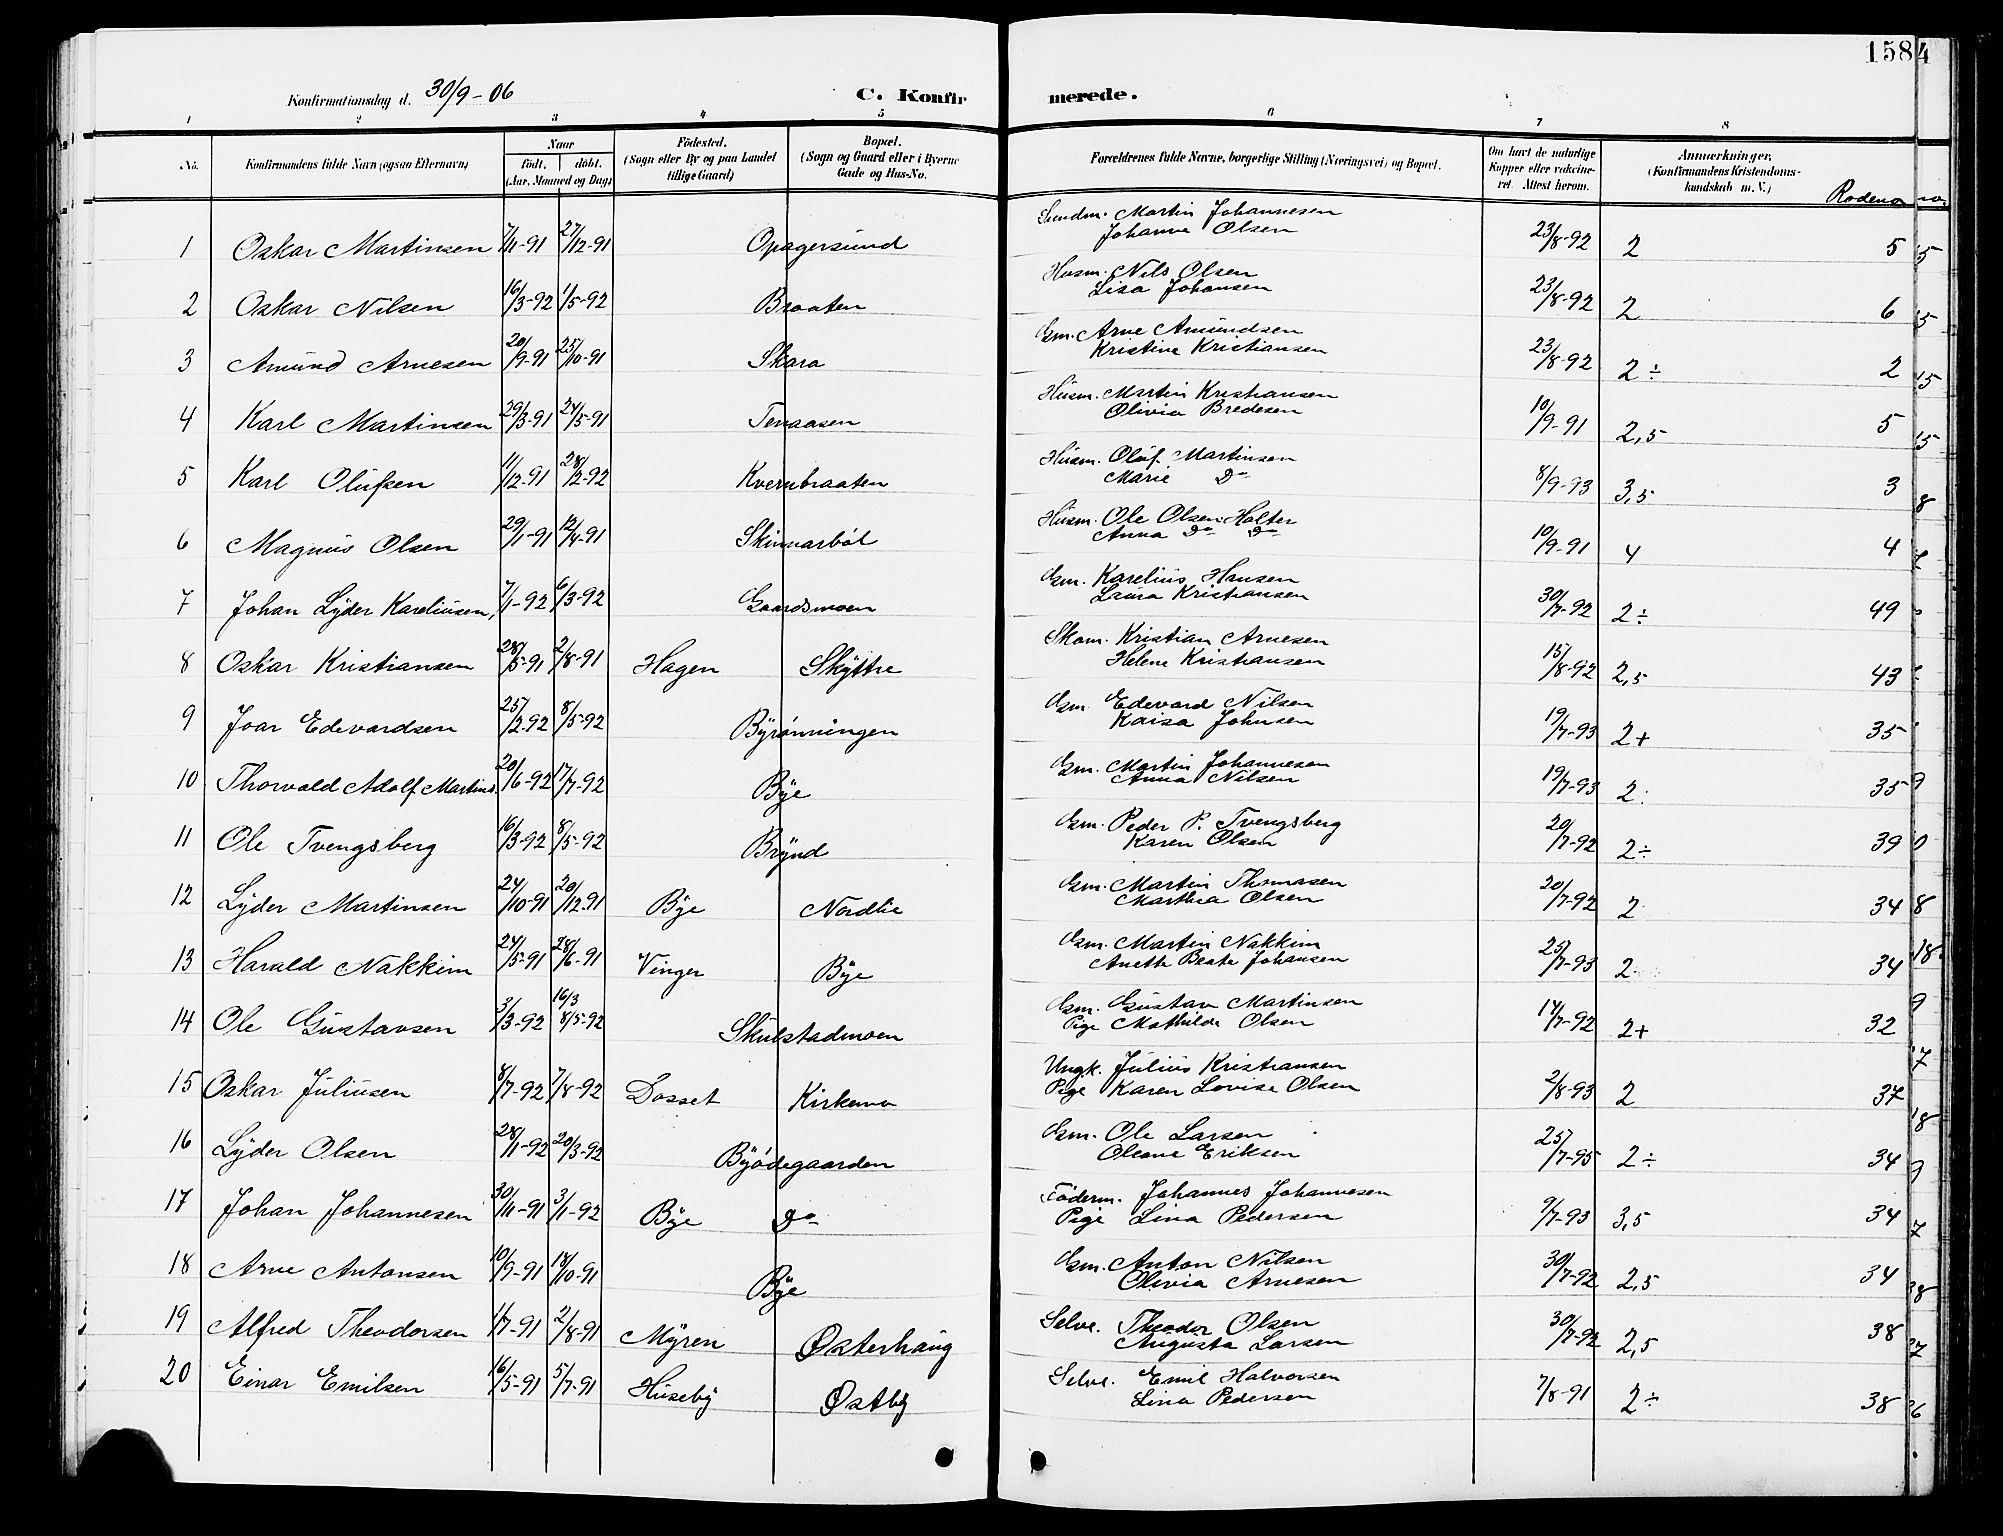 158
4
Konfirmationsdag d. 30/9-06
C. Konfirmerede.
1 2 3 4 5 6 7 8
No. Konfirmandens fulde Navn (ogsaa Efternavn) Naar født. døbt. (Aar, Maaned og Dag) Fødested. (Sogn eller By og paa Landet tillige Gaard) Bopæl. (Sogn og Gaard eller i Byerne Gade og Hus-No. Forældrenes fulde Navne, borgerlige Stilling (Næringsvei) og Bopæl. Om havt de naturlige Kopper eller vaccineret. Attest herom. Anmærkninger. (Konfirmandens Kristendomskundskab m. V.) Rodeno
1 Oskar Martinsen 7/11-91 27/12-91 Opagersund Sundm. Martin Johannesen 23/8-92 2 5
Johanne Olsen
2 Oskar Nilsen 16/3-92 1/5-92 Braaten Husm. Nils Olsen 23/8-92 2 6
Lisa Johansen
3 Amund Arnesen 20/9-91 25/10-91 Skara Gm. Arne Amundsen 23/8-92 2÷ 2
Kristine Kristiansen
4 Karl Martinsen 29/3-91 24/5-91 Tenaasen Husm. Martin Kristiansen 10/9-91 2,5 5
Olivia Bredesen
5 Karl Olufsen 11/12-91 28/2-92 Kvernbraaten Husm. Oluf Martinsen 8/9-93 3,5 3
Marie Do
6 Magnus Olsen 29/1-91 12/4-91 Skinnarböl Husm. Ole Olsen Holter 10/9-91 4 4
Anna Do Do
7 Johan Lyder Kareliusen, 7/1-92 6/3-92 Gaardsmoen Gm. Karelius Hansen 30/7-92 2÷ 49
Laura Kristiansen
8 Oskar Kristiansen 28/5-91 2/8-91 Hagen Skyttre Skom. Kristian Arnesen 15/8-92 2,5 43
Helene Kristiansen
9 Joar Edevardsen 25/2-92 8/5-92 Byrönningen Gm. Edevard Nilsen 19/7-93 2+ 35
Kaisa Johnsen
10 Thorvald Adolf Martins. 20/6-92 17/7-92 Bye Gm. Martin Johannesen 19/7-93 2 35
Anna Nilsen
11 Ole Tvengsberg 16/3-92 8/5-92 Brynd Gm. Peder P. Tvengsberg 20/7-92 2÷ 39
Karen Olsen
12 Lyder Martinsen 24/10-91 20/12-91 Bye Nordlie Gm. Martin Thomasen 20/7-92 2 34
Marthea Olsen
13 Harald Nakkim 24/5-91 28/6-91 Vinger Bye Gm. Martin Nakkim 25/7-93 2 34
Anette Beate Johansen
14 Ole Gustavsen 3/3-92 16/3 8/5-92 Skulstadmoen Gm. Gustav Martinsen 14/7-92 2+ 32
Pige Mathilde Olsen
15 Oskar Juliusen 8/7-92 7/8-92 Dosset Kirkemo Ungk. Julius Kristiansen 2/8-93 2 37
Pige Karen Lovise Olsen
16 Lyder Olsen 28/1-92 20/3-92 Byödegaarden Gm. Ole Larsen 25/7-95 2÷ 34
Oleane Eriksen
17 Johan Johannesen 30/11-91 3/1-92 Bye Do Föderm. Johannes Johannesen 9/7-93 3,5 34
Pige Lina Pedersen
18 Arne Antonsen 10/9-91 18/10-91 Bye Gm. Anton Nilsen 30/7-92 2,5 34
Olivia Arnesen
19 Alfred Theodorsen 11/7-91 2/8-91 Myren Østerhaug Selve. Theodor Olsen 30/7-92 2,5 38
Augusta Larsen
20 Einar Emilsen 16/5-91 5/7-91 Huseby Østby Selve. Emil Halvorsen 7/8-91 2÷ 38
Lina Pedersen